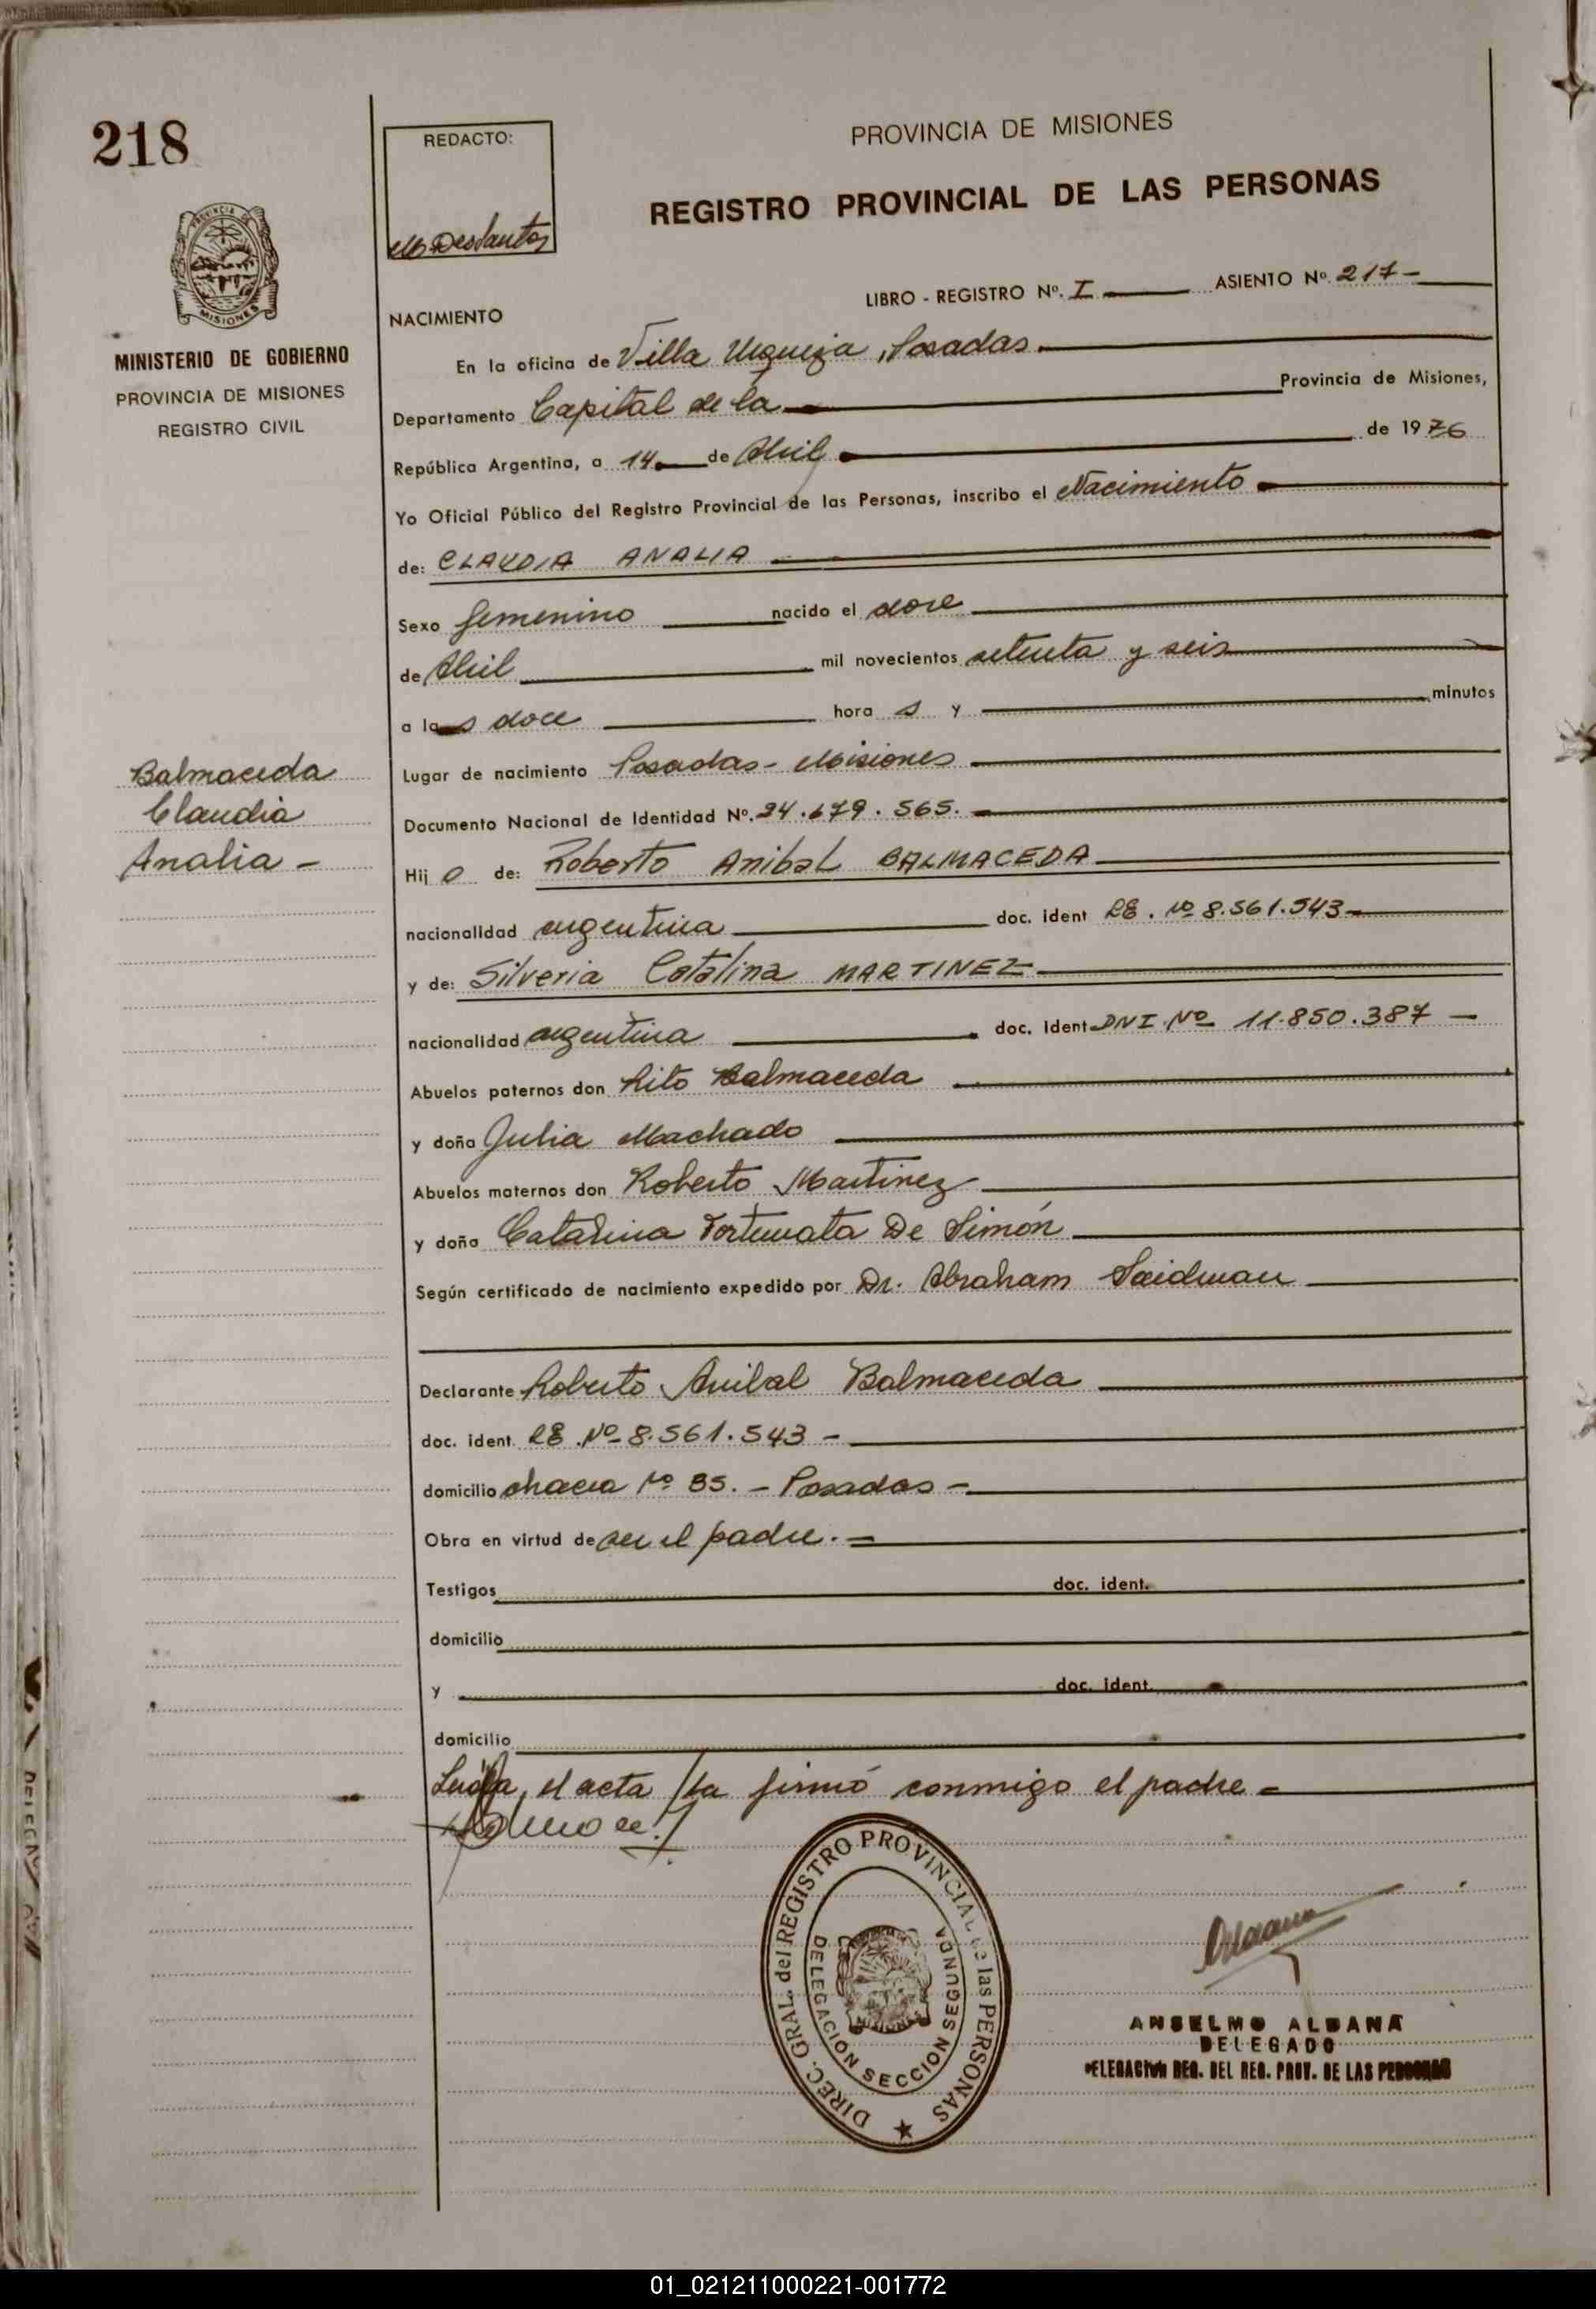 218
REDACTO:
PROVINCIA DE MISIONES
REGISTRO PROVINCIAL DE LAS PERSONAS
PROVINCIA DE
MISIONES
MINISTERIO DE GOBIERNO
PROVINCIA DE MISIONES
REGISTRO CIVIL
LIBRO - REGISTRO Nº. I ASIENTO Nº. 217-
NACIMIENTO
En la oficina de Villa Urquiza, Posadas.
Departamento Capital de la Provincia de Misiones,
República Argentina, a 14 de Abril de 1976
Yo Oficial Público del Registro Provincial de las Personas, inscribo el Nacimiento
de: CLAUDIA ANALIA
Sexo femenino nacido el doce
de Abril mil novecientos setenta y seis
a las doce hora s y minutos
Lugar de nacimiento Posadas - Misiones
Balmaceda
Claudia
Analia -
Documento Nacional de Identidad Nº. 24.679.565.
Hij o de: Roberto Anibal BALMACEDA
nacionalidad argentina doc. ident LE. Nº 8.561.543-
y de: Silveria Catalina MARTINEZ
nacionalidad argentina doc. ident DNI Nº 11.850.387 -
Abuelos paternos don Lito Balmaceda
y doña Julia Machado
Abuelos maternos don Roberto Martinez
y doña Catalina Fortunata De Simón
Según certificado de nacimiento expedido por Dr. Abraham Saidman
Declarante Roberto Anibal Balmaceda
doc. ident. LE Nº 8.561.543 -
domicilio chacra Nº 85. - Posadas -
Obra en virtud de ser el padre. =
Testigos doc. ident.
domicilio
y doc. ident.
domicilio
Leída, el acta la firmó conmigo el padre =
DIREC. GRAL. del REGISTRO PROVINCIAL de las PERSONAS
DELEGACION SECCION SEGUNDA
ANSELMO ALDANA
DELEGADO
DELEGACION REG. DEL REG. PROV. DE LAS PERSONAS
01_021211000221-001772